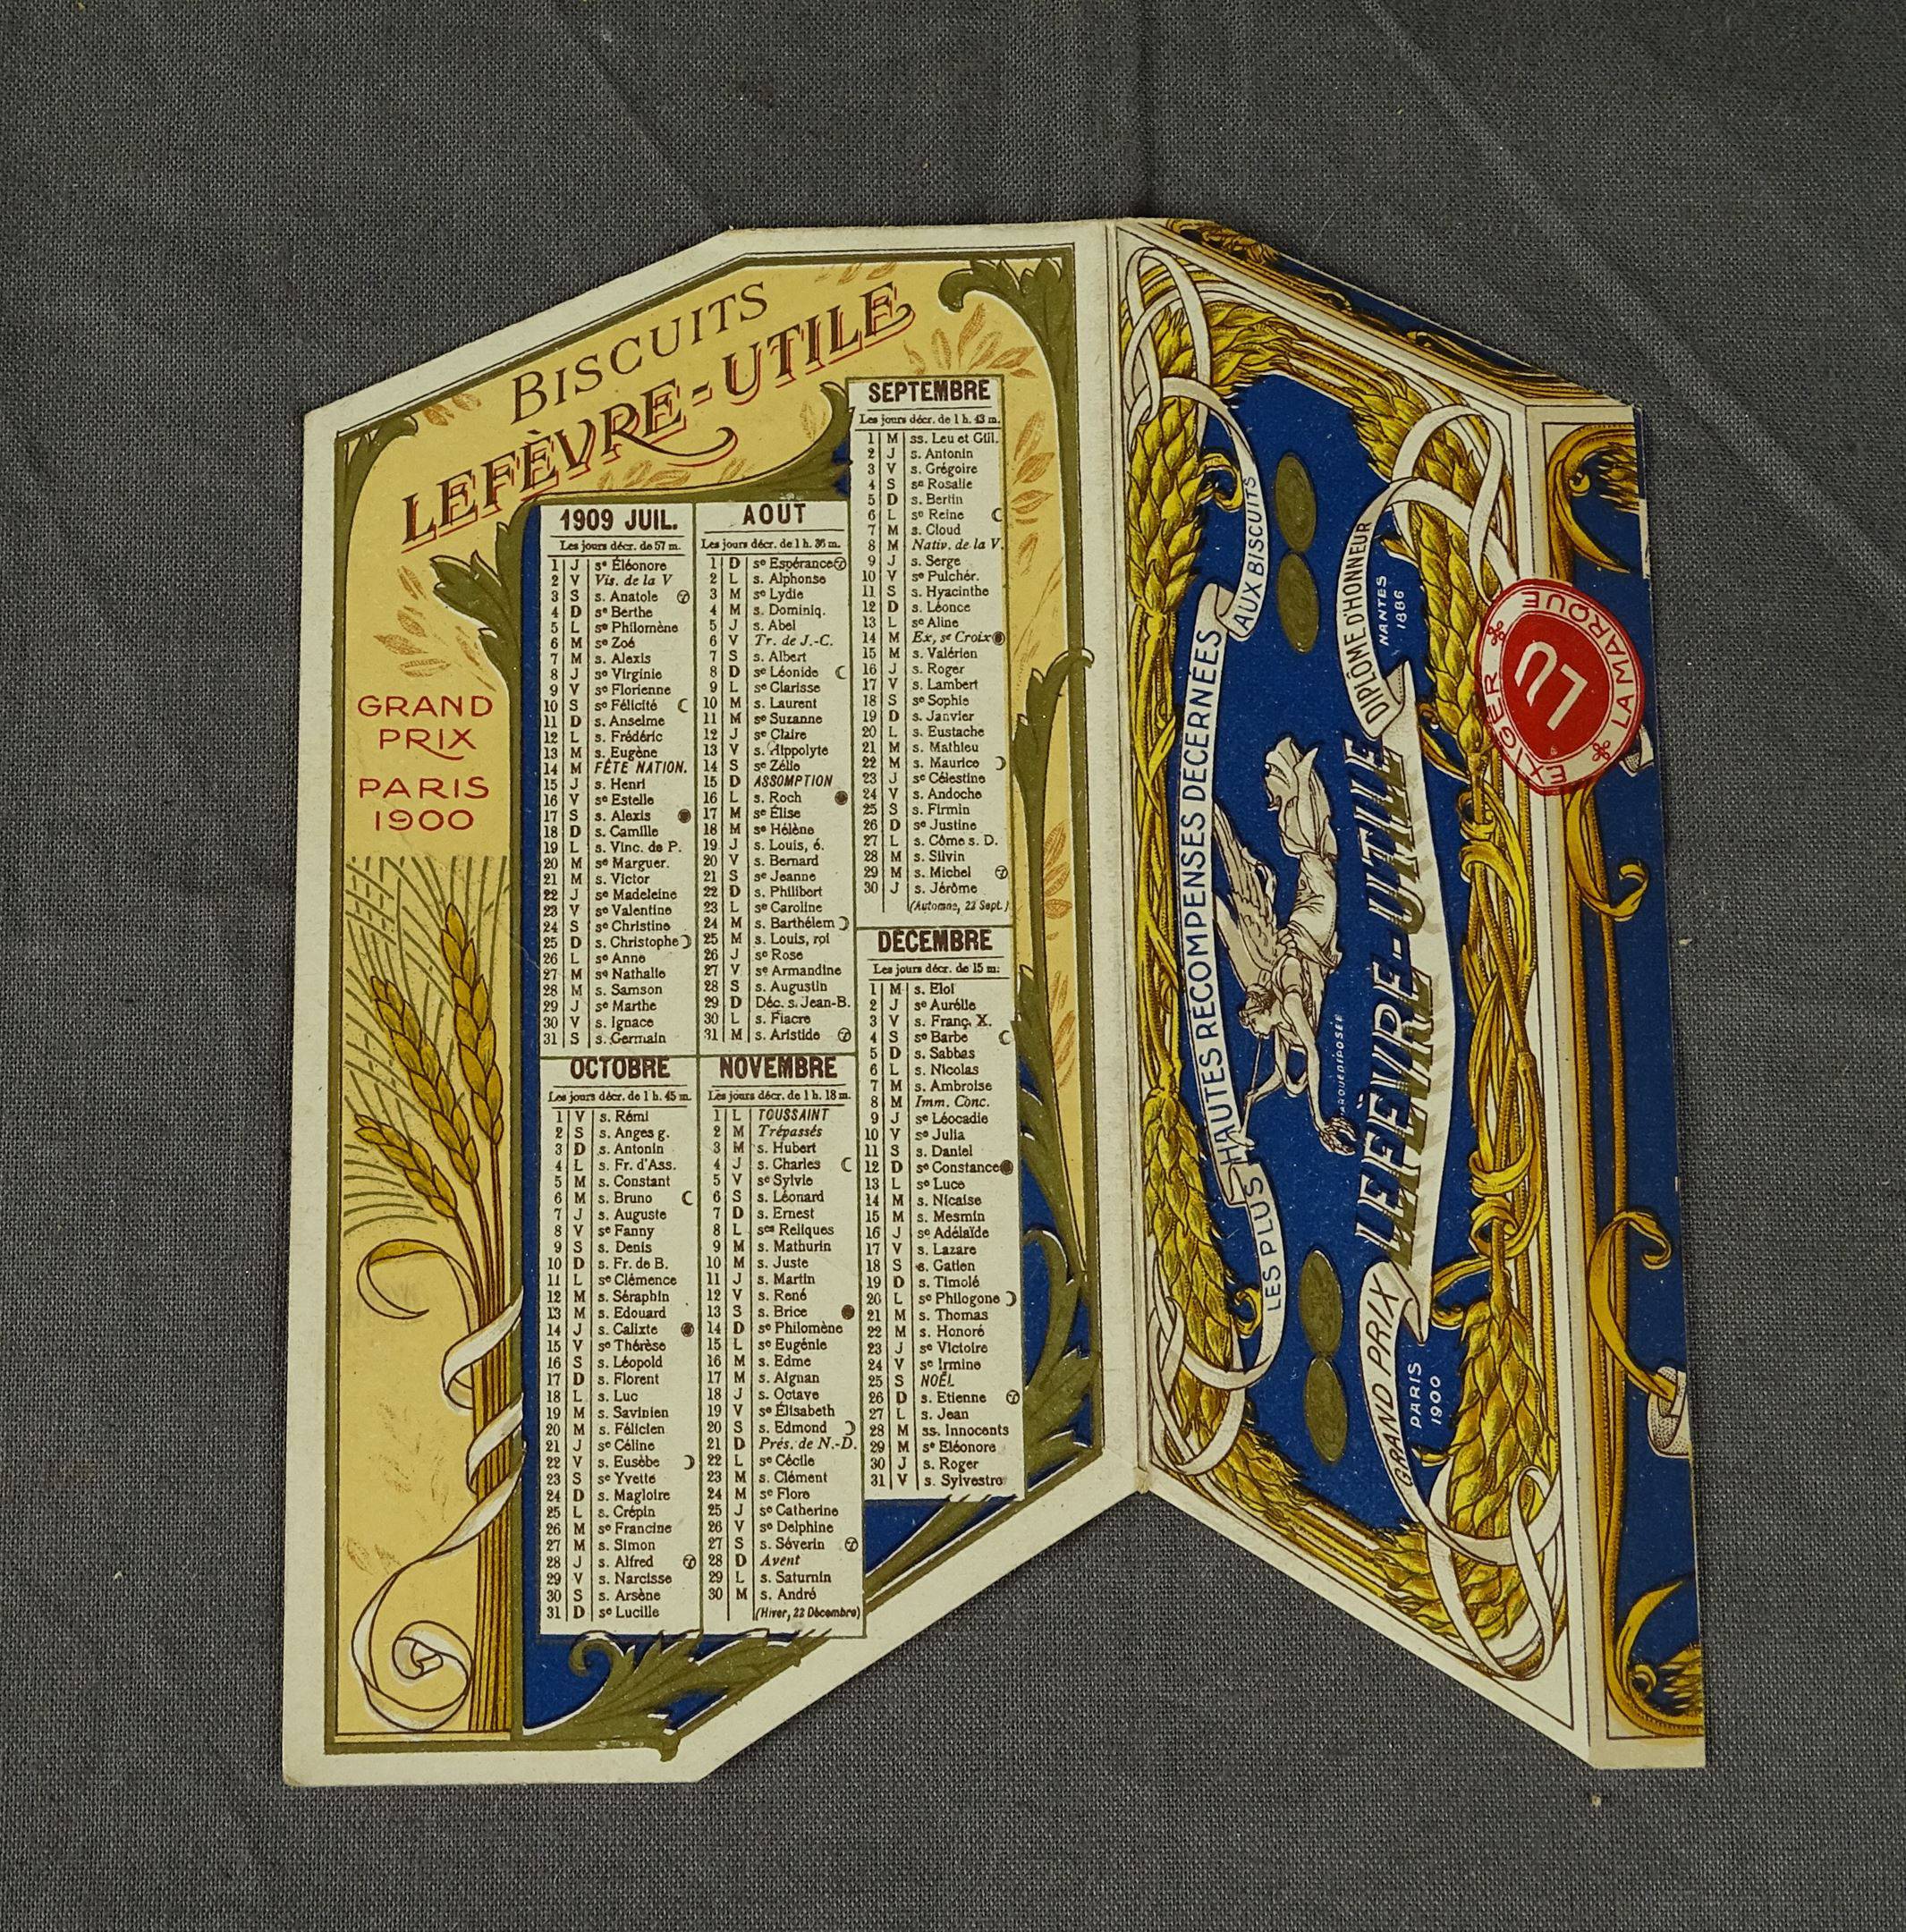 BISCUITS
LEFÈVRE-UTILE
GRAND
PRIX
PARIS
1900
1909 JUIL.
Les jours décr. de 57 m.
1 J se Éléonore
2 V Vis. de la V
3 S s. Anatole
4 D se Berthe
5 L se Philomène
6 M se Zoé
7 M s. Alexis
8 J se Virginie
9 V se Florienne
10 S se Félicité
11 D s. Anselme
12 L s. Frédéric
13 M s. Eugène
14 M FÊTE NATION.
15 J s. Henri
16 V se Estelle
17 S s. Alexis
18 D s. Camille
19 L s. Vinc. de P.
20 M se Marguer.
21 M s. Victor
22 J se Madeleine
23 V se Valentine
24 S se Christine
25 D s. Christophe
26 L se Anne
27 M se Nathalie
28 M s. Samson
29 J se Marthe
30 V s. Ignace
31 S s. Germain
AOUT
Les jours décr. de 1 h. 36 m.
1 D se Espérance
2 L s. Alphonse
3 M se Lydie
4 M s. Dominiq.
5 J s. Abel
6 V Tr. de J.-C.
7 S s. Albert
8 D se Léonide
9 L se Clarisse
10 M s. Laurent
11 M se Suzanne
12 J se Claire
13 V s. Hippolyte
14 S se Zélie
15 D ASSOMPTION
16 L s. Roch
17 M se Élise
18 M se Hélène
19 J s. Louis, é.
20 V s. Bernard
21 S se Jeanne
22 D s. Philibert
23 L se Caroline
24 M s. Barthélem
25 M s. Louis, roi
26 J se Rose
27 V se Armandine
28 S s. Augustin
29 D Déc. s. Jean-B.
30 L s. Fiacre
31 M s. Aristide
SEPTEMBRE
Les jours décr. de 1 h. 43 m.
1 M ss. Leu et Gill.
2 J s. Antonin
3 V s. Grégoire
4 S se Rosalie
5 D s. Bertin
6 L se Reine
7 M s. Cloud
8 M Nativ. de la V.
9 J s. Serge
10 V se Pulchér.
11 S s. Hyacinthe
12 D s. Léonce
13 L se Aline
14 M Ex. se Croix
15 M s. Valérien
16 J s. Roger
17 V s. Lambert
18 S se Sophie
19 D s. Janvier
20 L s. Eustache
21 M s. Mathieu
22 M s. Maurice
23 J se Célestine
24 V s. Andoche
25 S s. Firmin
26 D se Justine
27 L s. Côme s. D.
28 M s. Silvin
29 M s. Michel
30 J s. Jérôme
(Automne, 23 Sept.)
OCTOBRE
Les jours décr. de 1 h. 45 m.
1 V s. Rémi
2 S s. Anges g.
3 D s. Antonin
4 L s. Fr. d'Ass.
5 M s. Constant
6 M s. Bruno
7 J s. Auguste
8 V se Fanny
9 S s. Denis
10 D s. Fr. de B.
11 L se Clémence
12 M s. Séraphin
13 M s. Edouard
14 J s. Calixte
15 V se Thérèse
16 S s. Léopold
17 D s. Florent
18 L s. Luc
19 M s. Savinien
20 M s. Félicien
21 J se Céline
22 V s. Eusèbe
23 S se Yvette
24 D s. Magloire
25 L s. Crépin
26 M se Francine
27 M s. Simon
28 J s. Alfred
29 V s. Narcisse
30 S s. Arsène
31 D se Lucille
NOVEMBRE
Les jours décr. de 1 h. 18 m.
1 L TOUSSAINT
2 M Trépassés
3 M s. Hubert
4 J s. Charles
5 V se Sylvie
6 S s. Léonard
7 D s. Ernest
8 L ses Reliques
9 M s. Mathurin
10 M s. Juste
11 J s. Martin
12 V s. René
13 S s. Brice
14 D se Philomène
15 L se Eugénie
16 M s. Edme
17 M s. Aignan
18 J s. Octave
19 V se Élisabeth
20 S s. Edmond
21 D Prés. de N.-D.
22 L se Cécile
23 M s. Clément
24 M se Flore
25 J se Catherine
26 V se Delphine
27 S s. Séverin
28 D Avent
29 L s. Saturnin
30 M s. André
(Hiver, 22 Décembre)
DÉCEMBRE
Les jours décr. de 15 m.
1 M s. Eloi
2 J se Aurélie
3 V s. Franç. X.
4 S se Barbe
5 D s. Sabbas
6 L s. Nicolas
7 M s. Ambroise
8 M Imm. Conc.
9 J se Léocadie
10 V se Julia
11 S s. Daniel
12 D se Constance
13 L se Luce
14 M s. Nicaise
15 M s. Mesmin
16 J se Adélaïde
17 V s. Lazare
18 S s. Gatien
19 D s. Timolé
20 L se Philogone
21 M s. Thomas
22 M s. Honoré
23 J se Victoire
24 V se Irmine
25 S NOËL
26 D s. Etienne
27 L s. Jean
28 M ss. Innocents
29 M se Eléonore
30 J s. Roger
31 V s. Sylvestre
LES PLUS HAUTES RÉCOMPENSES DÉCERNÉES AUX BISCUITS
MARQUE DÉPOSÉE
LEFÈVRE-UTILE
GRAND PRIX
PARIS
1900
DIPLÔME D'HONNEUR
NANTES
1886
EXIGER
LU
LA MARQUE